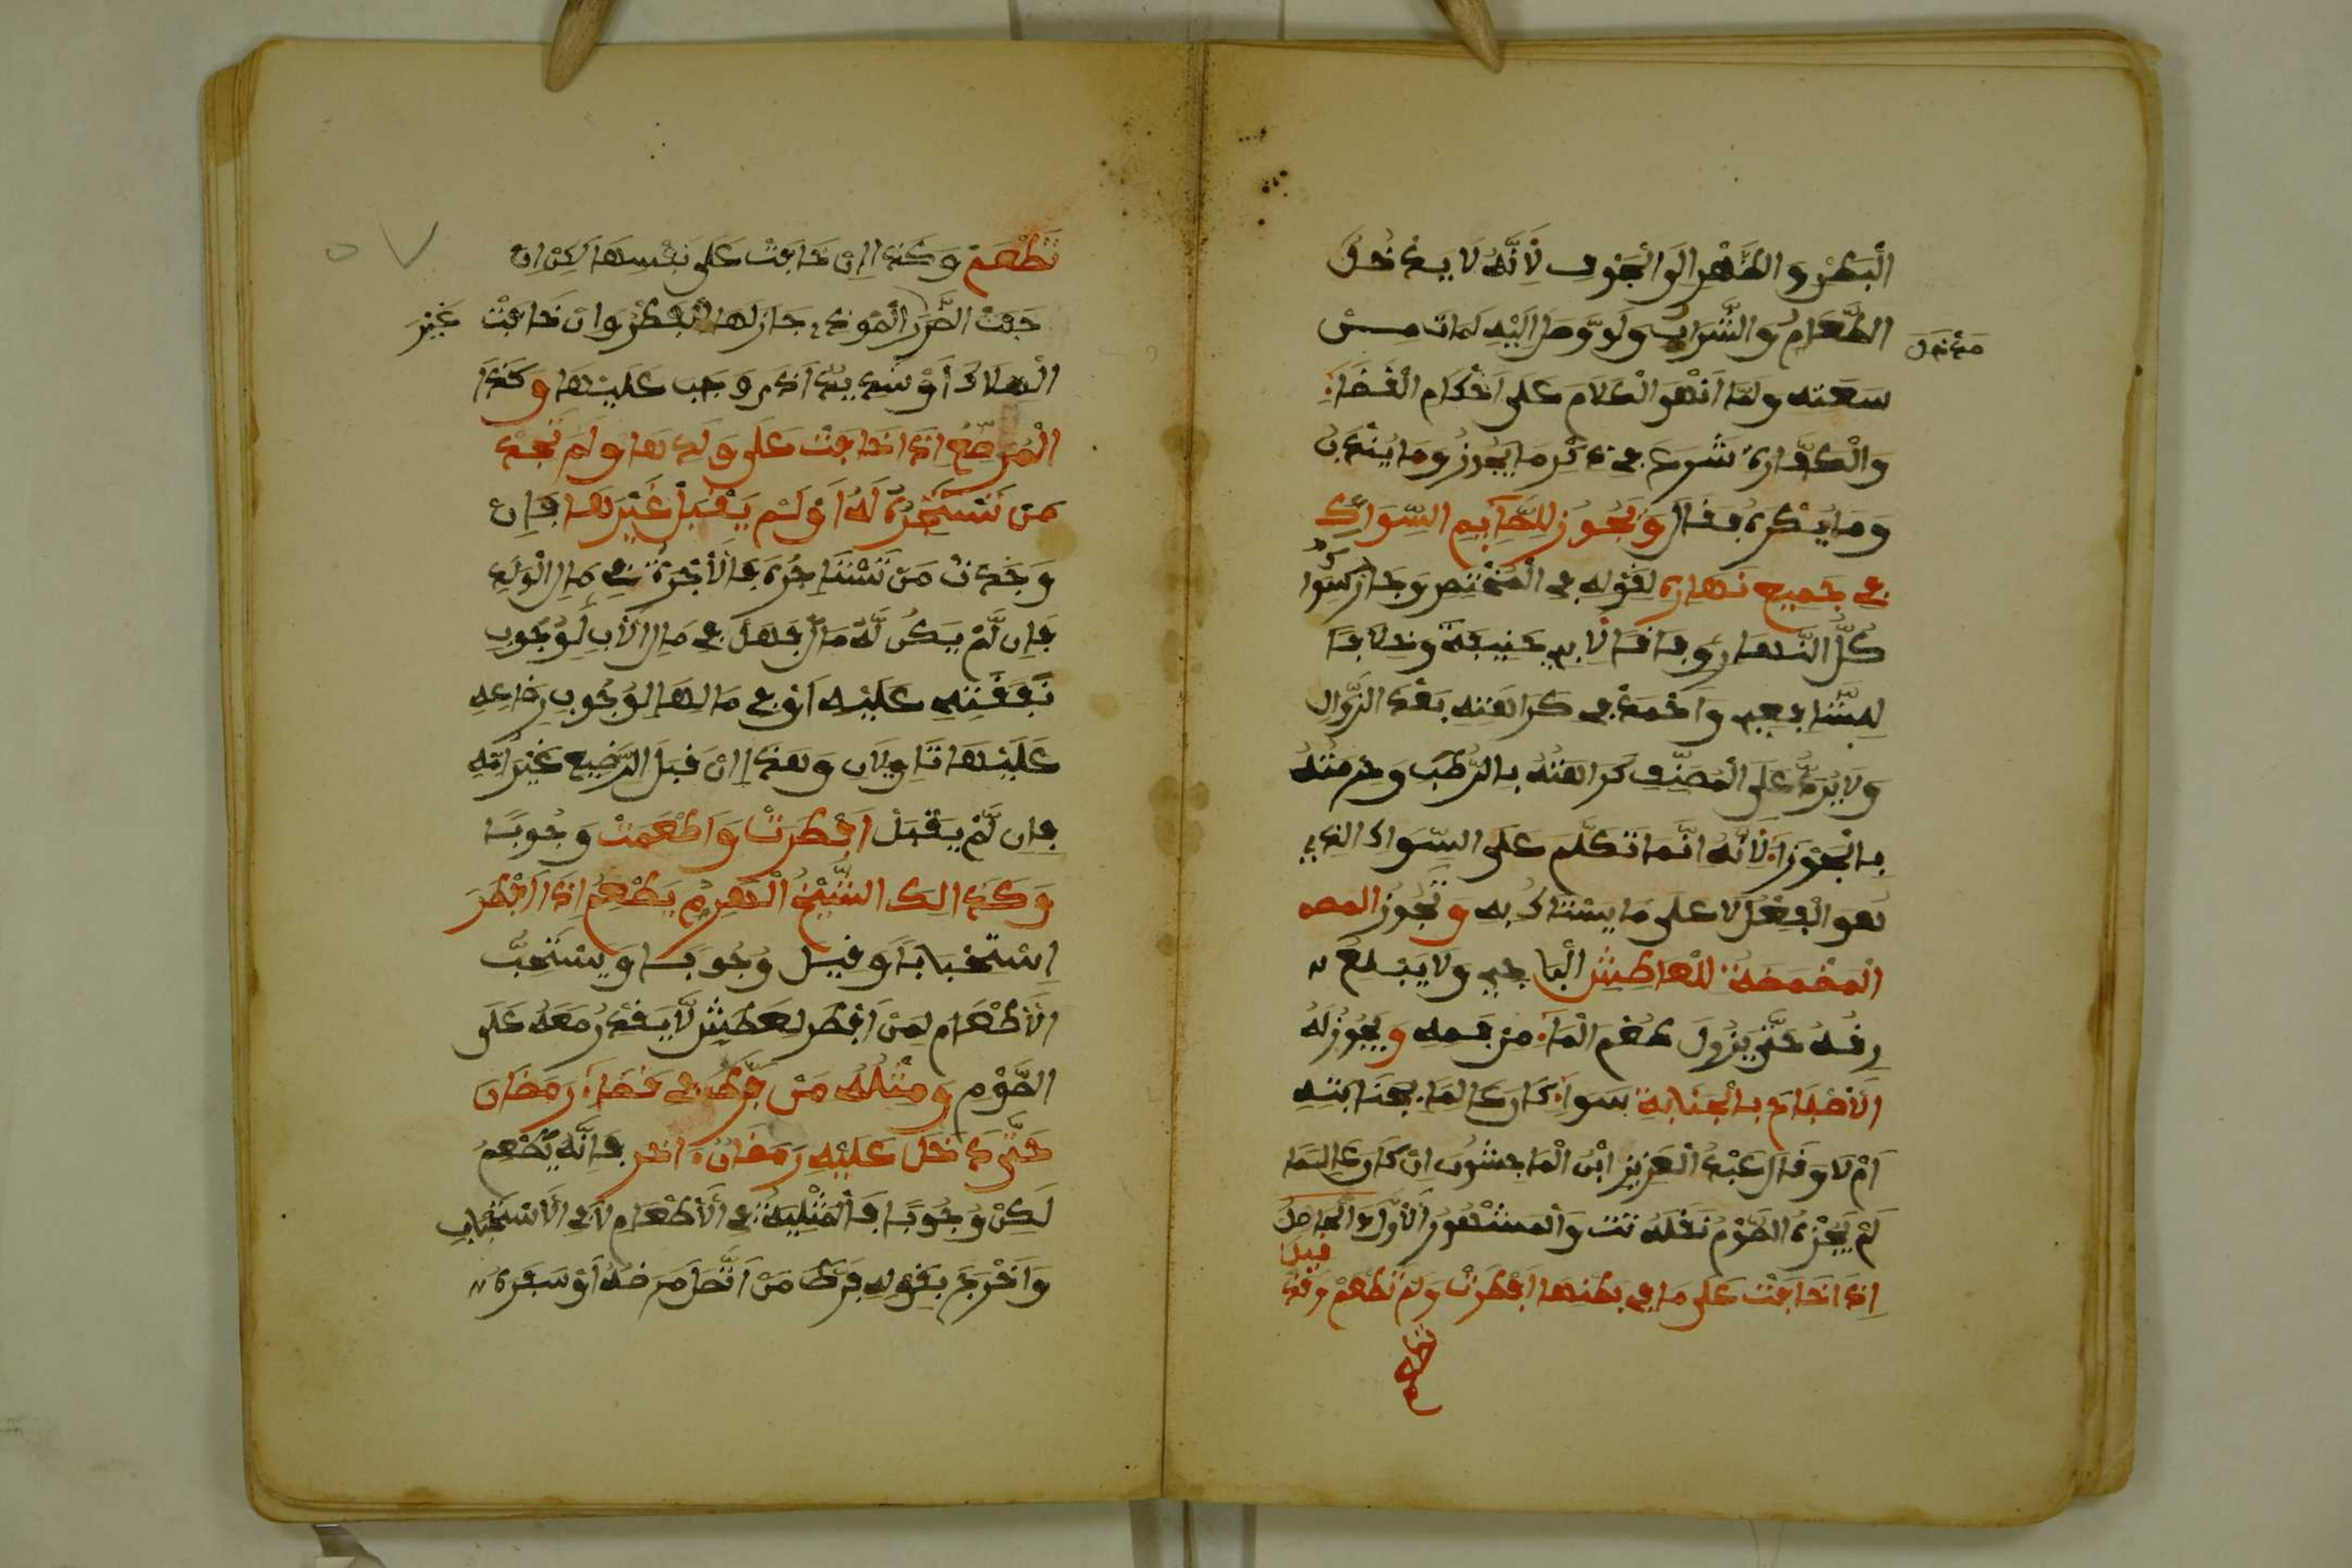 الْبَطْنِ وَالظَّهْرِ إِلَى الْجَوْفِ لِأَنَّهُ لَا يَدْخُلُ
مَدْخَلَ
الطَّعَامِ وَالشَّرَابِ وَلَوْ وَصَلَ إِلَيْهِ لَمَاتَ مِنْ
سَعَته وَلَمَّا أَنْهَى الْكَلَامَ عَلَى أَحْكَامِ الْقَضَاءِ
وَالْكَفَّارَةِ شَرَعَ فِي ذِكْرِ مَا يَجُوزُ وَمَا يُنْدَبُ
وَمَا يُكْرَهُ فقَالَ وَيَجُوزُ لِلصَّائِمِ السِّوَاكُ
فِي جَمِيعِ نَهَارِهِ لِقَوْلِهِ فِي الْمُخْتَصَرِ وَجَازَ سِوَاكٌ
كُلَّ النَّهَارِ وِفَاقًا لِأَبِي حَنِيفَةَ وَخِلَافًا
لِلشَّافِعِي وَأَحْمَدَ فِي كَرَاهَتِهِ بَعْدَ الزَّوَالِ
وَلَا يُرَدُّ عَلَى الْمُصَنِّفِ كَرَاهَتُهُ بِالرَّطْبِ وَحُرْمَتُهُ
بِالْجَوْزَاءِ لِأَنَّهُ إِنَّمَا تَكَلَّمَ عَلَى السِّوَاكِ الذِي
هُوَ الْفِعْلُ لَا عَلَى مَا يَسْتَاكُ بِهِ وَتَجُوزُ المض
الْمَضْمَضَةُ لِلْعَاطِشِ وَلَا يَبْلَعُ
رِيقَهُ حَتَّى يَزُولَ طَعْمُ الْمَاءِ مِنْ فَمِهِ وَيَجُوزُ لَهُ
الْإِصْبَاحُ بِالْجَنَابَةِ سَوَاءً كَانَ عَالِمًا بِجَنَابَتِهِ
أَمْ لَا وَقَالَ عَبْدُ الْعَزِيزِ ابْنُ الْمَاجِشُونِ إِنْ كَانَ عَالِمًا
لَمْ يُجْزِهِ الصَّوْمُ نَقَلَهُ تت وَالْمَشْهُورُ الْأَوَّلُ وَالْحَامِلُ
إِذَا خَافَتْ عَلَى مَا فِي بَطْنِهَا أَفْطَرَتْ وَلَمْ تُطْعِمْ وَقَدْ
قِيلَ
تُطْعِمُ وَكَذَا إِنْ خَافَتْ عَلَى نَفْسِهَا لَكِنْ إِنْ
خَافَتْ الضَّرَرَ الْمُوذِي جَازَ لَهَا الْفِطْرُ وَإِنْ خَافَتْ غَيْرَ
الْهَلَاكِ أَوْ شَدِيدَ أَذًى وَجَبَ عَلَيْهَا وَكَذَا
الْمُرْضِعُ إِذَا خَافَتْ عَلَى وَلَدِهَا وَلَمْ تَجِدْ
مَنْ تَسْتَأْجِرُهُ لَهُ أَوْ لَمْ يَقْبَلْ غَيْرَهَا فَإِنْ
وَجَدَتْ مَنْ تَسْتَأْجِرُهُ فَالْأُجْرَةُ فِي مَالِ الْوَلَدِ
فَإِن لَّمْ يَكُن لَّهُ مَالٌ فَهَلْ فِي مَالِ الْأَبِ لِوُجُوبِ
نَفَقَتِهِ عَلَيْهِ أَوْ فِي مَالِهَا لِوُجُوبِ رَضَاعِهِ
عَلَيْهَا تَاوِيلَانِ وَهَذَا إِنْ قَبِلَ الرَّضِيعُ غَيْرَ أُمِّهِ
فَإِن لَّمْ يَقْبَلْ أَفْطَرَتْ وَأَطْعَمَتْ وُجُوبًا
وَكَذَالِكَ الشَّيْخُ الْهَرِمُ يُطْعِمُ إِذَا أَفْطَرَ
اِسْتِحْبَابًا وَقِيلَ وُجُوبًا وَيُسْتَحَبُّ
الْإِطْعَامُ لِمَنْ أَفْطَرَ لِعَطَشٍ لَّا يَقْدِرُ مَعَهُ عَلَى
الصَّوْمِ وَمِثْلُهُ مَنْ فَرَّطَ فِي قَضَاءِ رَمَضَانَ
حَتَّى دَخَلَ عَلَيْهِ رَمَضَانُ ءَاخَرُ فَإِنَّهُ يُطْعِمُ
لَكِنْ وُجُوبًا فَالْمِثْلِيَّةُ فِي الْإِطْعَامِ لَا فِي الْاسْتِحْبَابِ
وَأَخْرَجَ بِقَوْلِهِ فَرَّطَ مَنْ اتَّصَلَ مَرَضُهُ أَوْ سَفَرُهُ